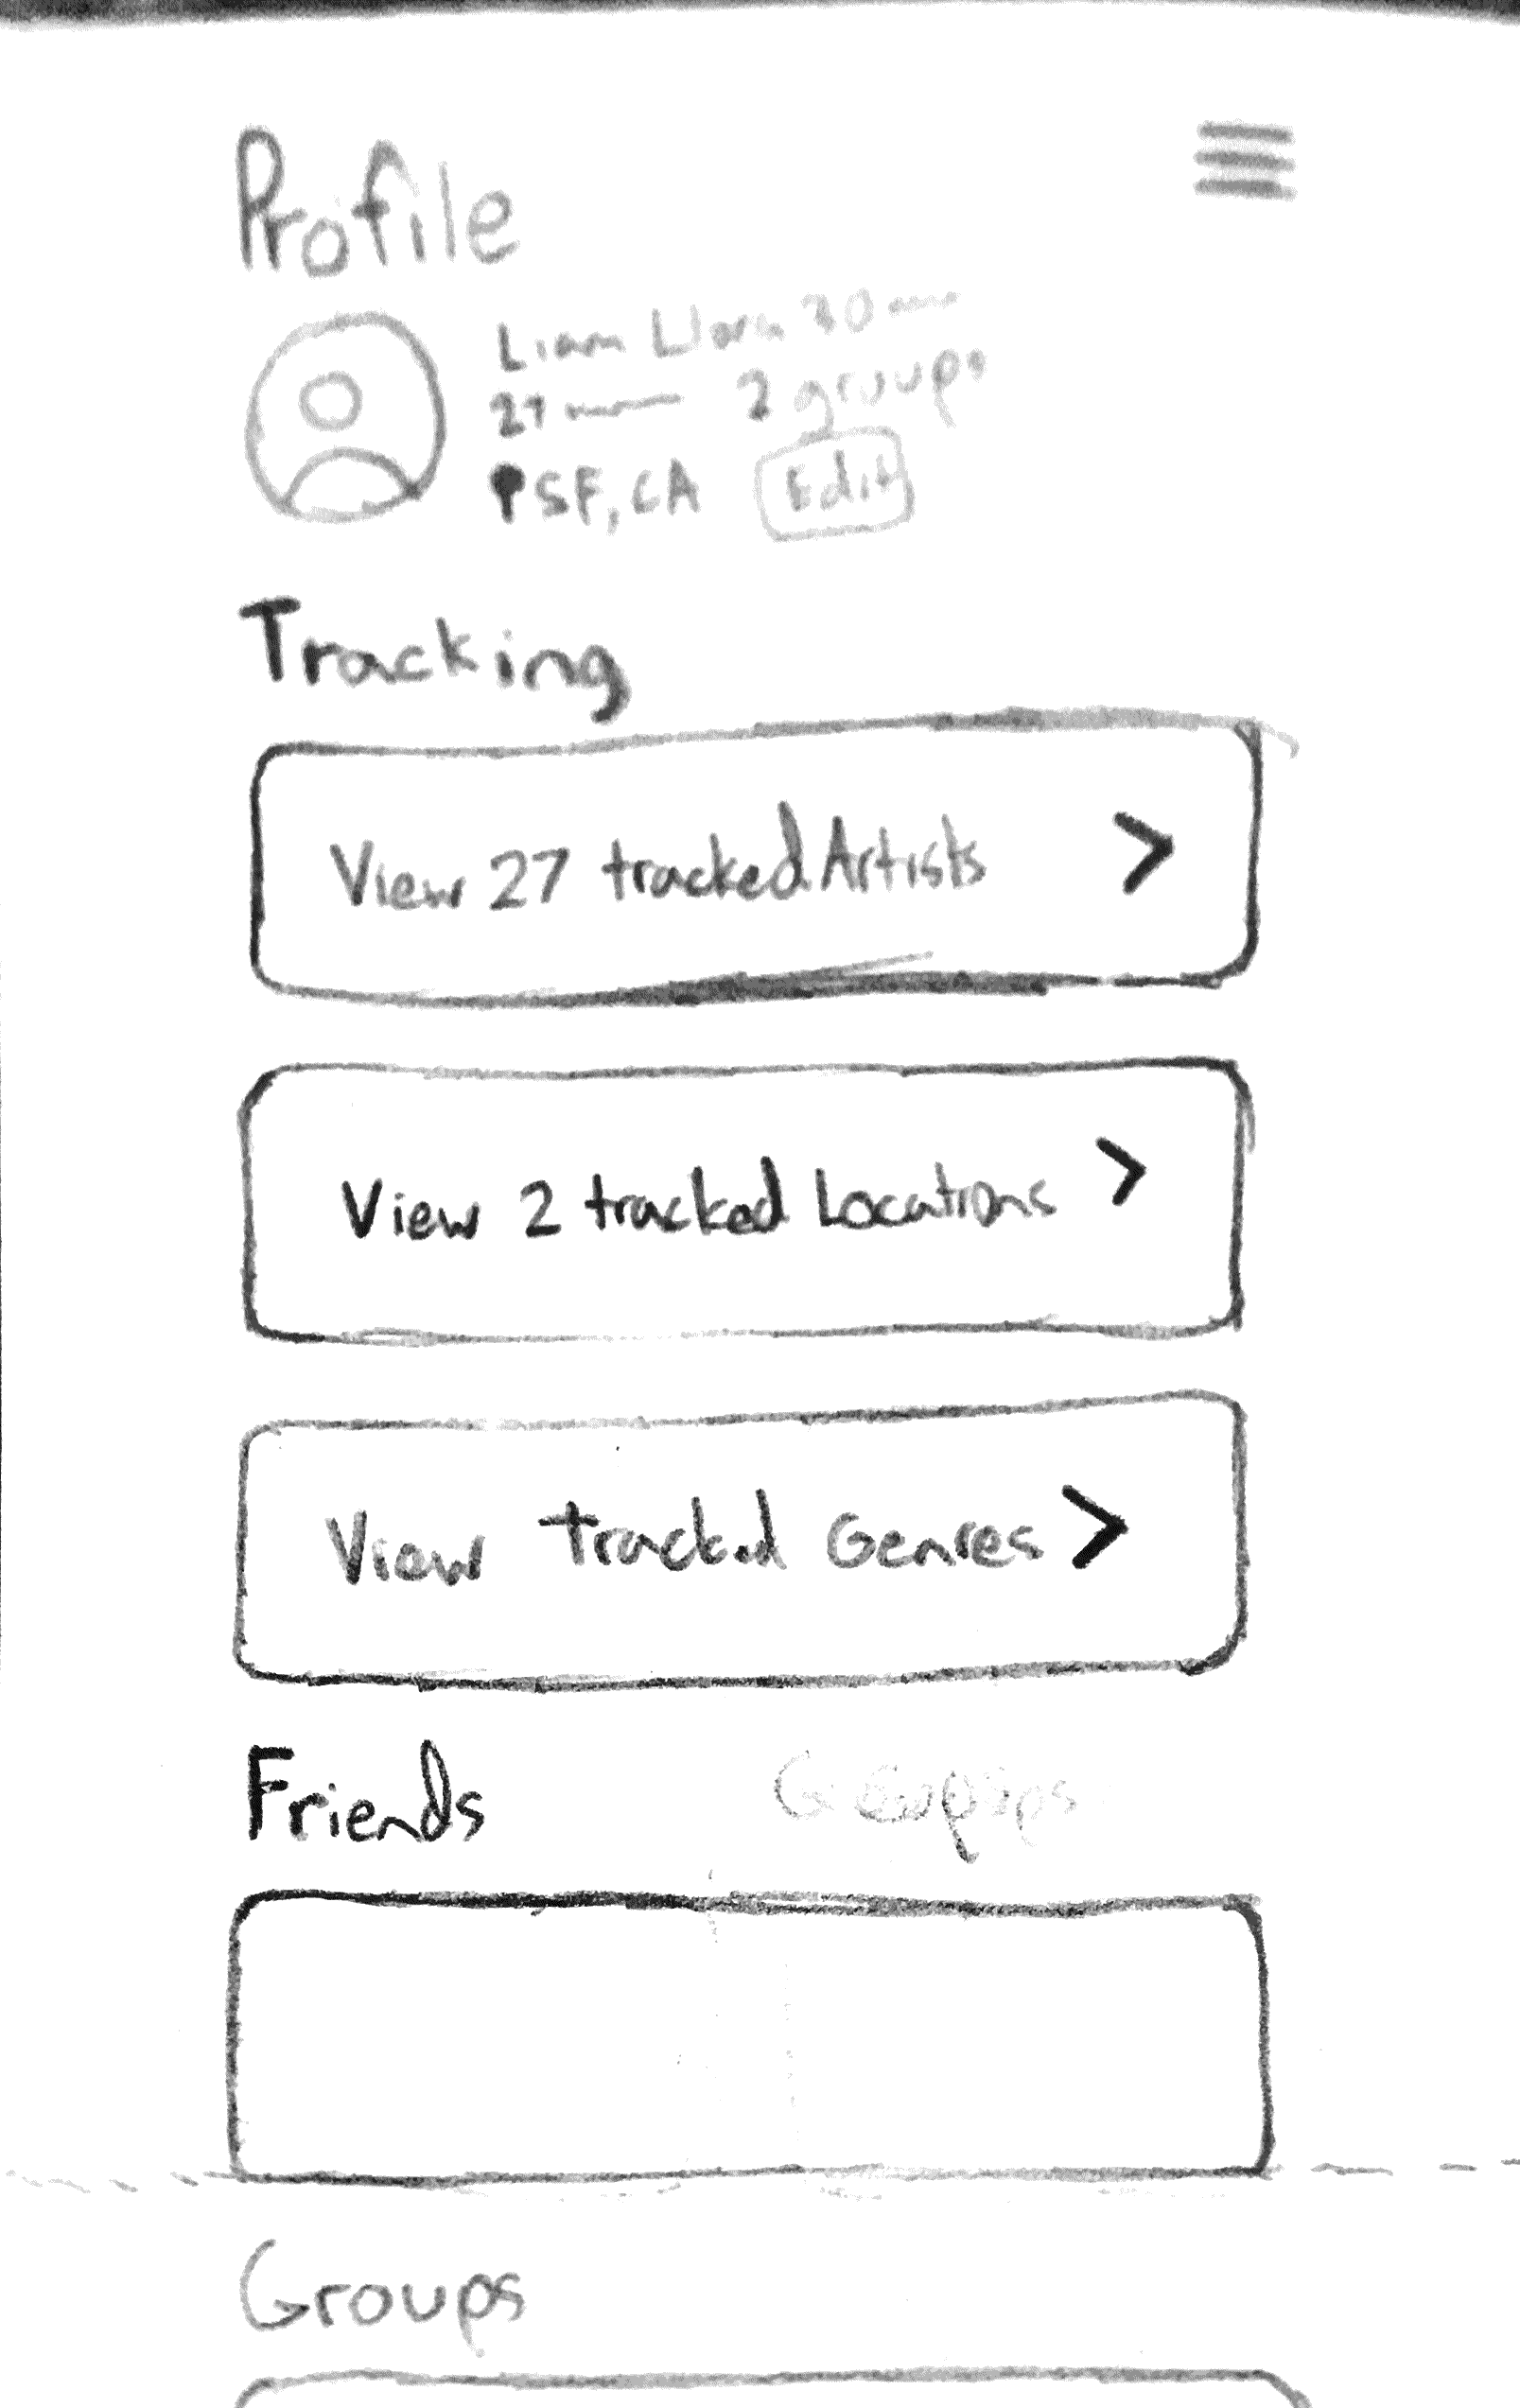 Profile
Liam
27 2 groups
SF, CA Edit
Tracking
View 27 tracked Artists >
View 2 tracked Locations >
View tracked Genres >
Friends
Groups